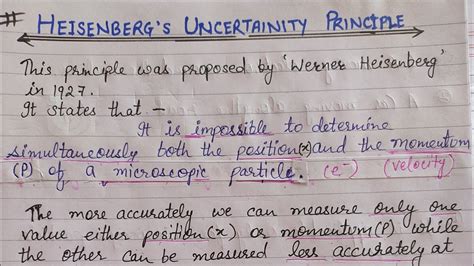 # HEISENBERG'S UNCERTAINITY PRINCIPLE
This principle was proposed by 'Werner Heisenberg'
in 1927.
It states that –
It is impossible to determine
simultaneously both the position(x) and the momentum
(P) of a microscopic particle. (e⁻) (velocity)
The more accurately we can measure only one
value either position(x) or momentum(P) while
the other can be measured less accurately at